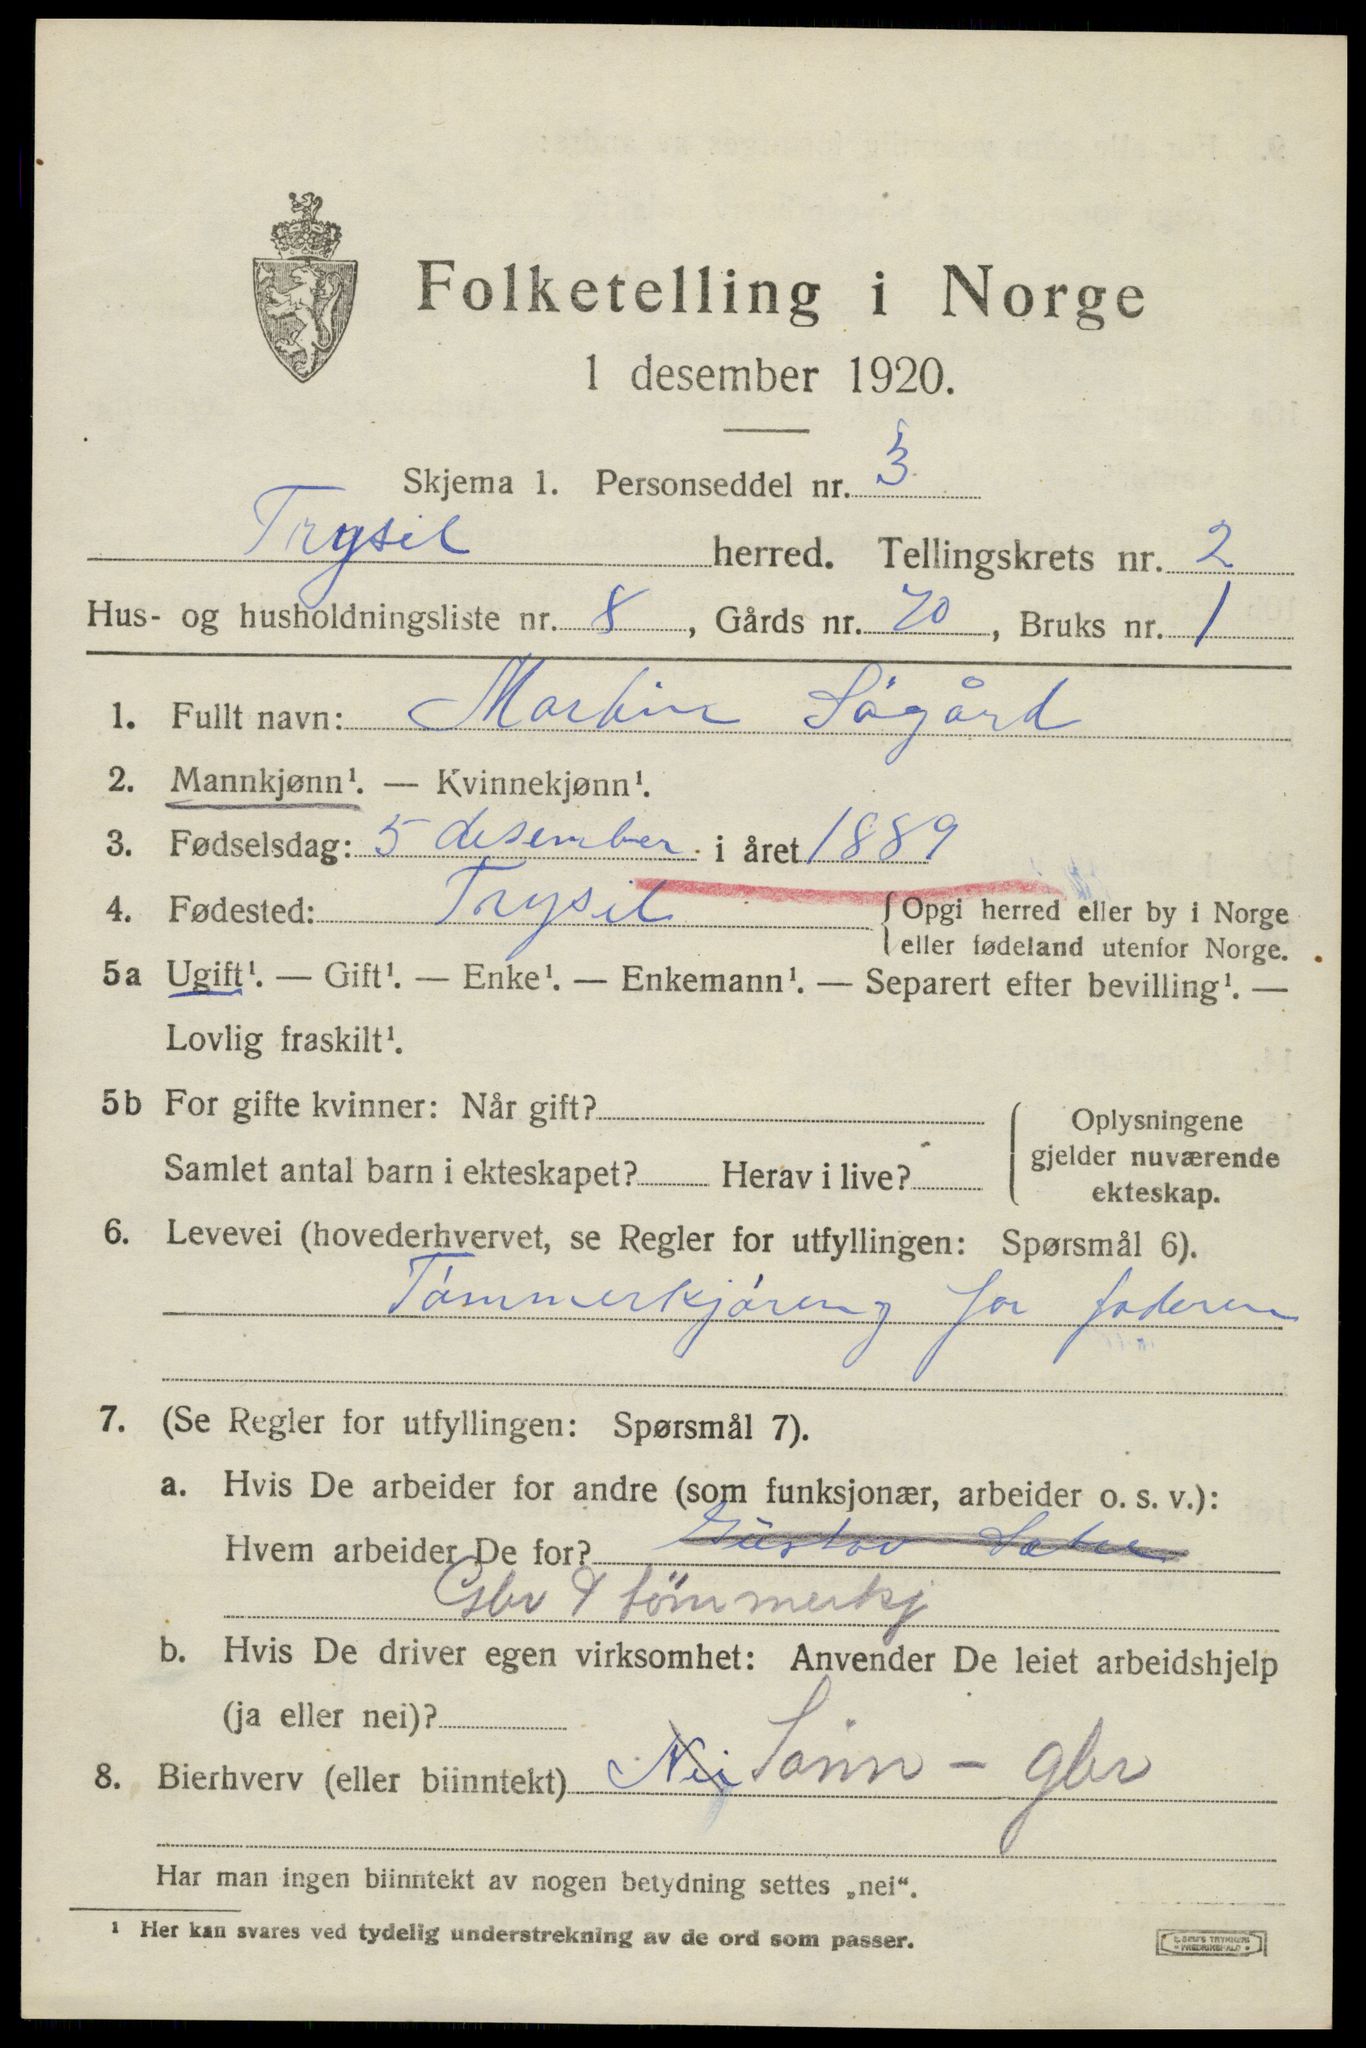 Folketelling i Norge
1 desember 1920.
Skjema 1. Personseddel nr. 3
Trysil herred. Tellingskrets nr. 2
Hus- og husholdningsliste nr. 8, Gårds nr. 70, Bruks nr. 1
1. Fullt navn: Martin Sögård
2. Mannkjønn¹. — Kvinnekjønn¹.
3. Fødselsdag: 5 desember i året 1889
4. Fødested: Trysil {Opgi herred eller by i Norge
eller fødeland utenfor Norge.
5a Ugift¹. — Gift¹. — Enke¹. — Enkemann¹. — Separert efter bevilling¹. —
Lovlig fraskilt¹.
5b For gifte kvinner: Når gift?
Samlet antal barn i ekteskapet? Herav i live?
Oplysningene
gjelder nuværende
ekteskap.
6. Levevei (hovederhvervet, se Regler for utfyllingen: Spørsmål 6).
Tömmerkjöreng for faderen
7. (Se Regler for utfyllingen: Spørsmål 7).
a. Hvis De arbeider for andre (som funksjonær, arbeider o. s. v.):
Hvem arbeider De for? Gustav
Gbr & tömmerkj
b. Hvis De driver egen virksomhet: Anvender De leiet arbeidshjelp
(ja eller nei)?
8. Bierhverv (eller biinntekt) Nei Sönn - gbr
Har man ingen biinntekt av nogen betydning settes „nei“.
¹ Her kan svares ved tydelig understrekning av de ord som passer.